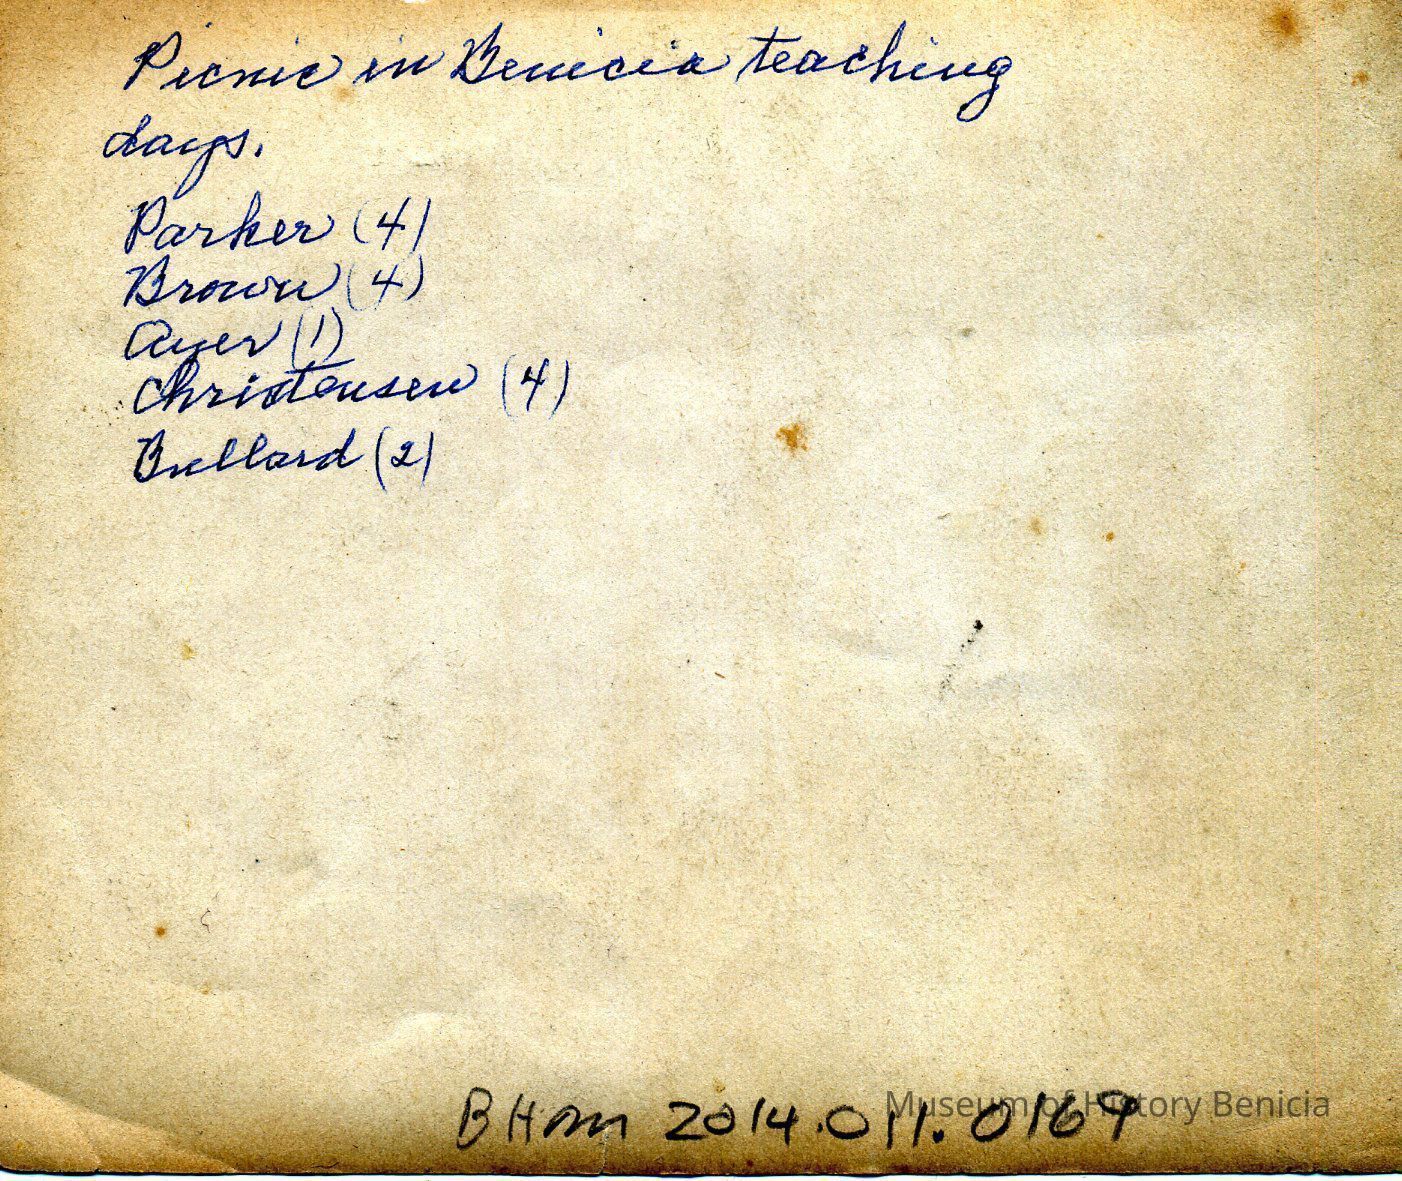 Picnic in Benicia teaching
days.
Parker (4)
Brown (4)
Ayer (1)
Christensen (4)
Bullard (2)
BHM 2014.011.0169
Museum of History Benicia